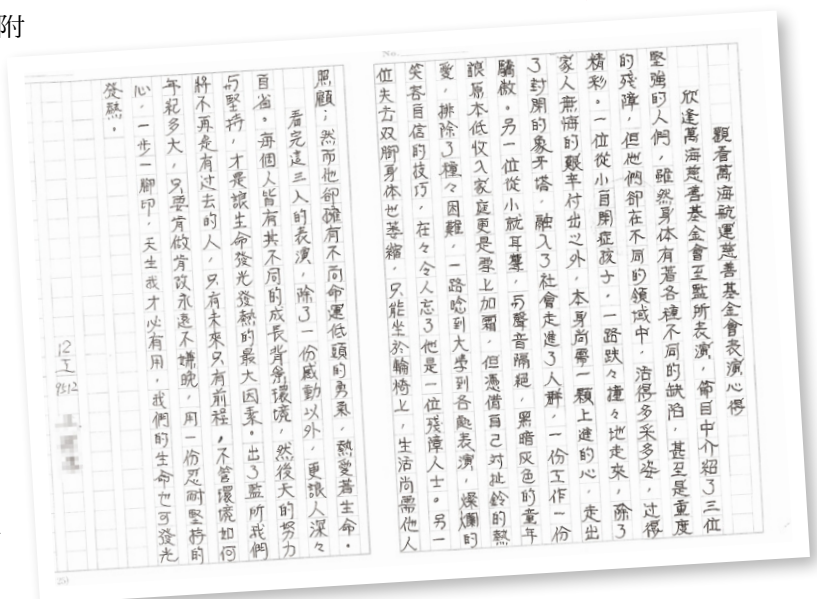 附
觀看萬海航運慈善基金會表演心得
欣逢萬海慈善基金會至監所表演，節目中介紹了三位
堅強的人們，雖然身体有著各種不同的缺陷，甚至是重度
的殘障，但他們卻在不同的領域中，活得多采多姿，过得
精彩。一位從小自閉症孩子，一路跌々撞々地走來，除了
家人無悔的艱辛付出之外，本身尚需一顆上進的心，走出
了封閉的象牙塔，融入了社會走進了人群，一份工作一份
驕傲。另一位從小就耳聾，与聲音隔絕，黑暗灰色的童年
讓原本低收入家庭更是雪上加霜，但憑借自己对扯鈴的熱
愛，排除了種々困難，一路唸到大學到各處表演，燦爛的
笑容自信的技巧，在々令人忘了他是一位殘障人士。另一
位失去双腳身体也萎縮，只能坐於輪椅上，生活尚需他人
照顧；然而他卻擁有不向命運低頭的勇氣，熱愛著生命。
看完這三人的表演，除了一份感動以外，更讓人深々
自省。每個人皆有其不同的成長背景環境，然後天的努力
与堅持，才是讓生命發光發熱的最大因素。出了監所我們
將不再是有过去的人，只有未來只有前程。不管環境如何
年紀多大，只要肯做肯改永遠不嫌晚，用一份忍耐堅持的
心，一步一腳印，天生我才必有用，我們的生命也可發光
發熱。
12工
9512
No.